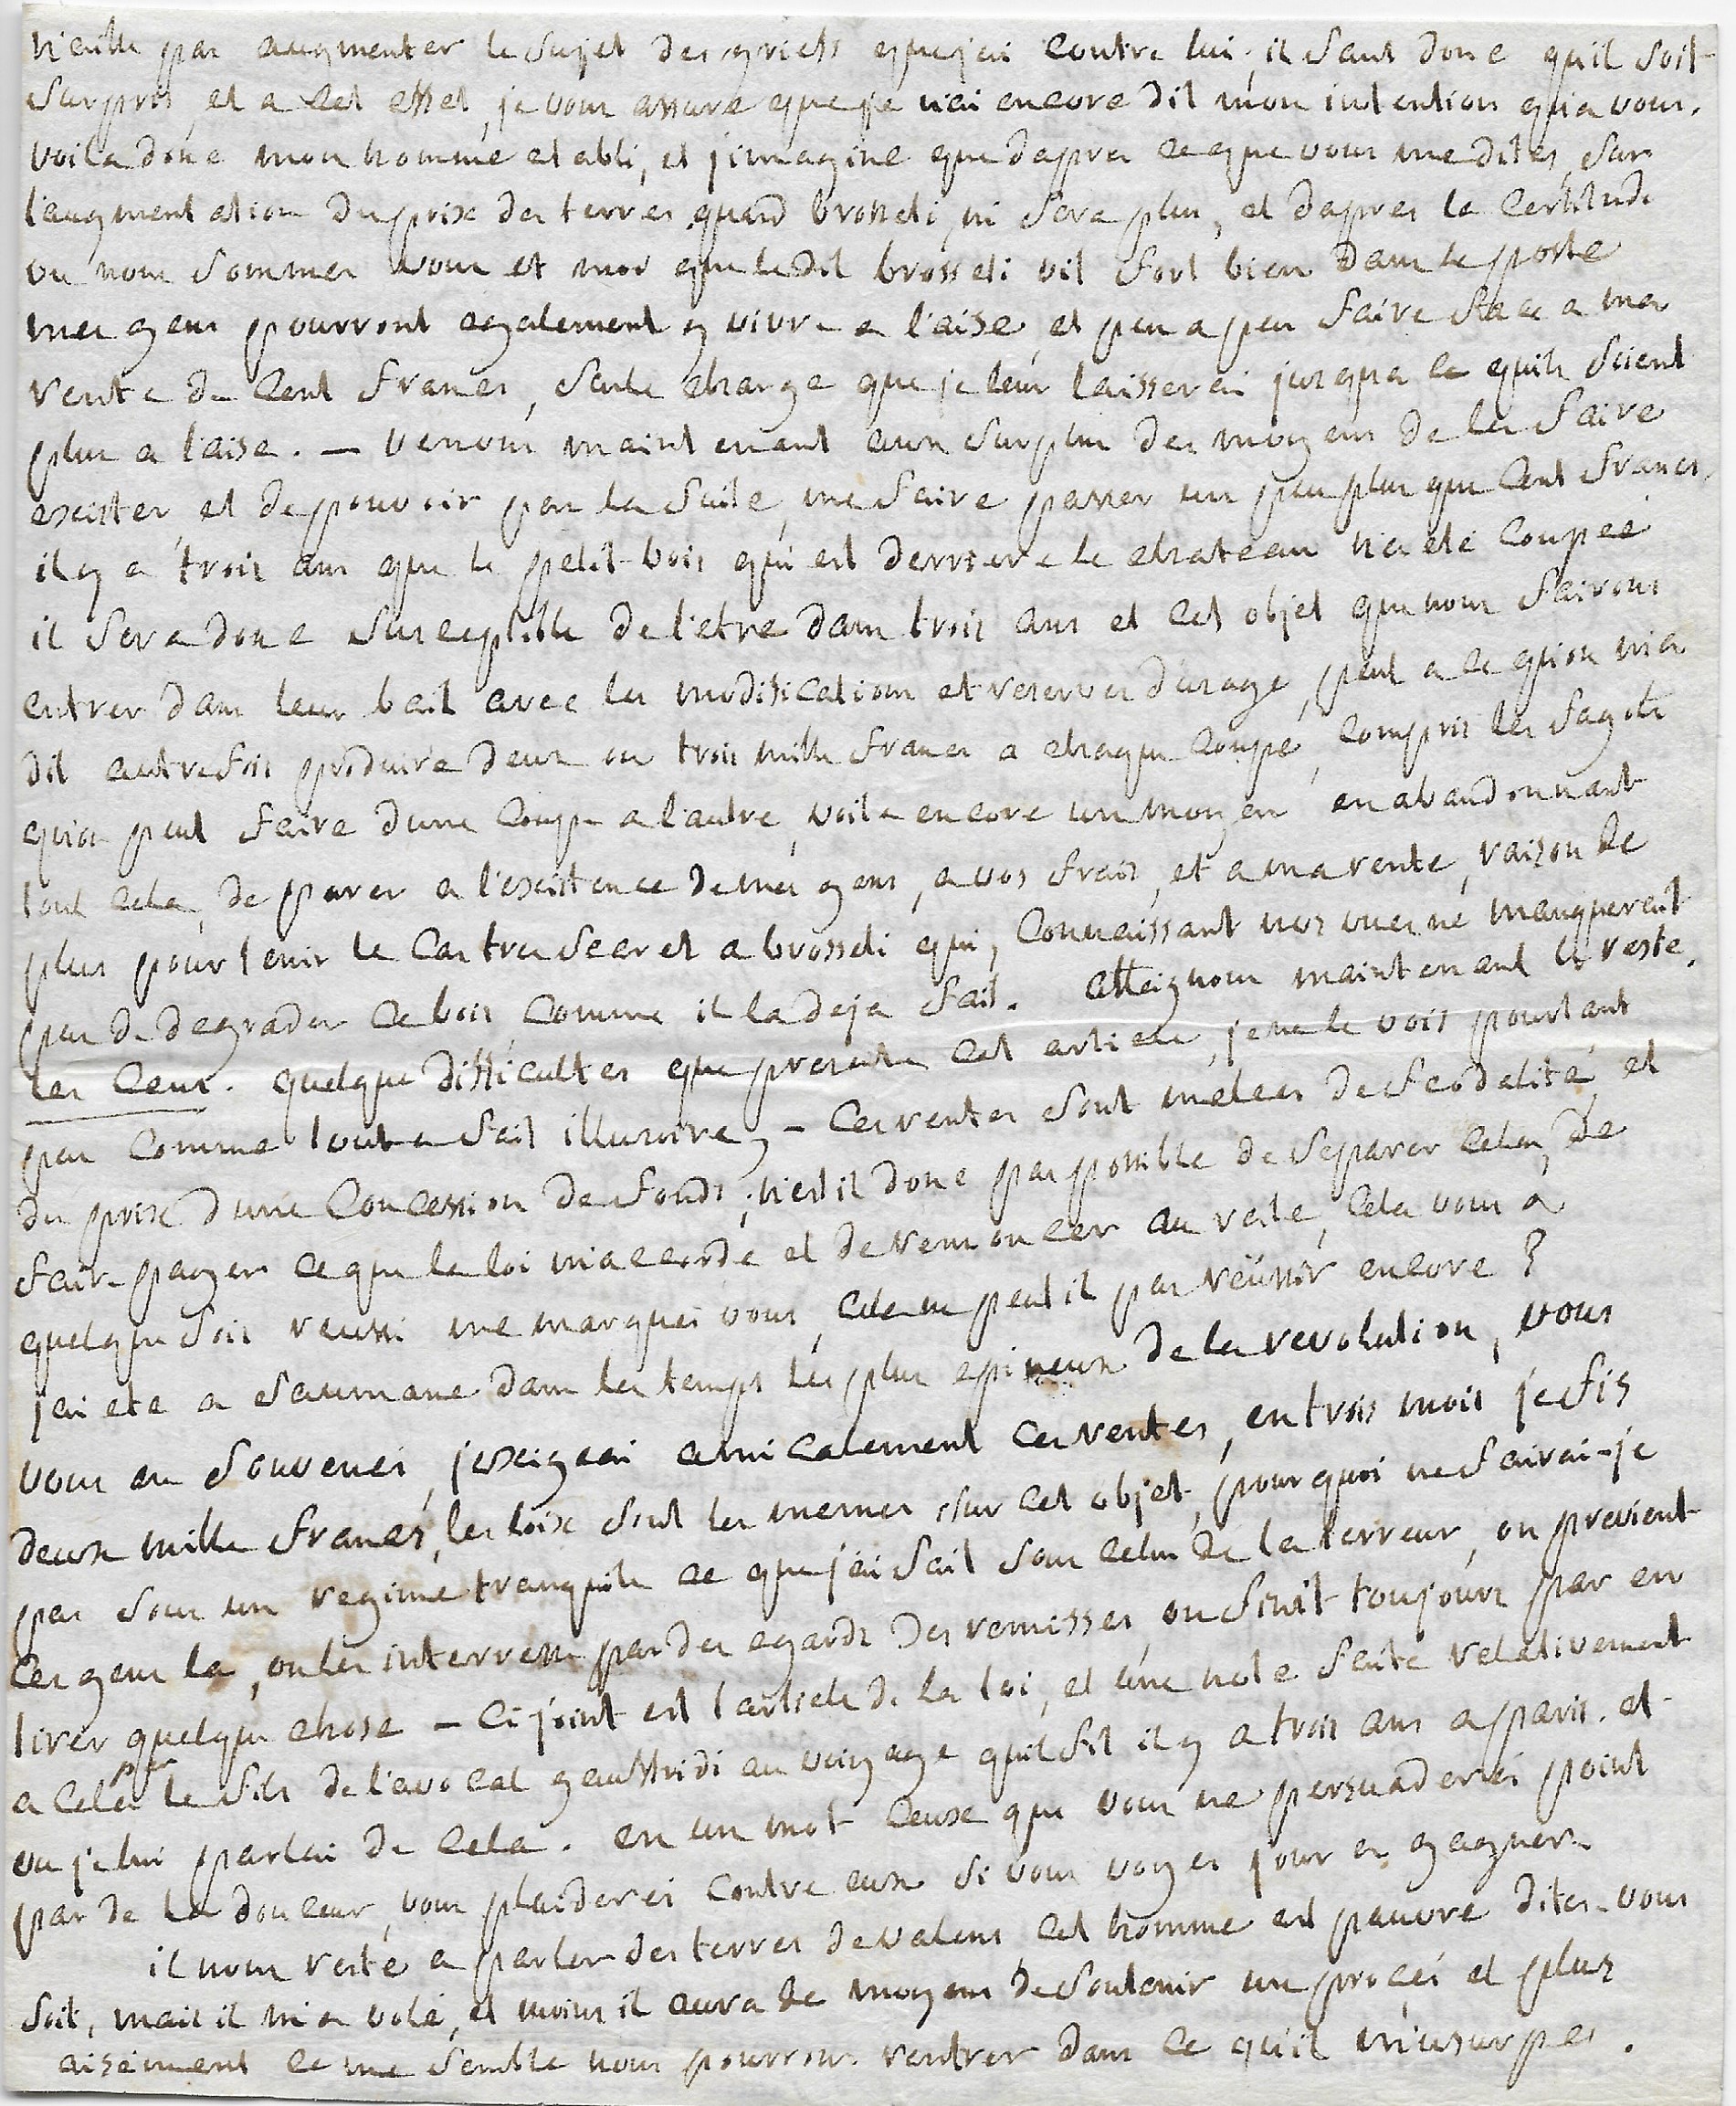 veuille pas augmenter le sujet des griefs que jai contre lui; il faut donc quil soit
surpris, et a cet effet, je vous assure que je nai encore dit mon intention qua vous.
voila donc mon homme etabli, et jimagine que dapres ce que vous me dites sur
l'augmentation du prix des terres quand brosseti ni sera plus, et dapres la certitude
ou nous sommes vous et moi que ledit brosseti vit fort bien dans ce poste
mes gens pourront egalement y vivre a l'aise, et peu a peu faire face a ma
rente de cent francs, seule charge que je leur laisserai jusqua ce quils soient
plus a l'aise. — venons maintenant aux surplus des moyens de les faire
exister, et de pouvoir par la suite, me faire passer un peu plus que cent francs,
il y a trois ans que le petit bois qui est derriere le chateau n'a été coupée
il sera donc susceptible de l'etre dans trois ans et cet objet que nous fairons
entrer dans leur bail avec les modifications et reserves dusage, peut a ce qu'on m'a
dit autrefois produire deux ou trois mille francs a chaque coupe, compris les fagots
quon peut faire dune coupe a l'autre, voila encore un moyen en abandonnant
tout cela, de parer a l'existence de mes gens, a vos frais, et a ma rente, raison de
plus pour tenir le cas tres secret a brosseti qui, connaissant nos vues ne manquerait
pas de degrader ce bois comme il la deja fait. atteignons maintenant le reste.
les cens. quelque difficultes que presente cet article, je ne le vois pourtant
pas comme tout a fait illusoire, — ces rentes sont melees de feodalité, et
du prix d'une concession de fonds; n'est il donc pas possible de separer cela, de
faire payer ce que la loi m'accorde et de renoncer au reste, cela vous a
quelque fois reussi me marques vous, cela ne peut il pas reüssir encore?
jai ete a saumane dans les temps les plus epineux de la revolution, vous
vous en souvenes, jexigeai amicalement ces rentes, en trois mois je fis
deux mille francs, les loix sont les memes sur cet objet, pourquoi ne fairai-je
pas sous un regime tranquile ce que j'ai fait sous celui de la terreur, on previent
ces gens la, on les interresse par des egards des remisses, on finit toujours par en
tirer quelque chose — ci joint est l'article de la loi, et une note faite relativement
a cela par le fils de l'avocat gauffridi au voiyage quil fit il y a trois ans a paris. et
ou je lui parlai de cela. en un mot ceux que vous ne persuaderéi point
par de la douceur, vous plaiderei contre eux si vous voyes jour a gagner.
il nous reste a parler des terres de valens cet homme est pauvre dites-vous
soit, mais il m'a volé, et moins il aura de moyens de soutenir un procès et plus
aisement ce me semble nous pourrons rentrer dans ce qu'il m'usurpe.